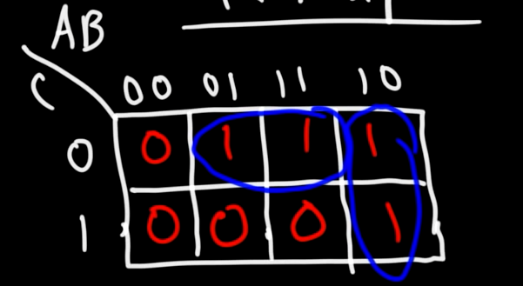 AB
C 00 01 11 10
0 0 1 1 1
1 0 0 0 1